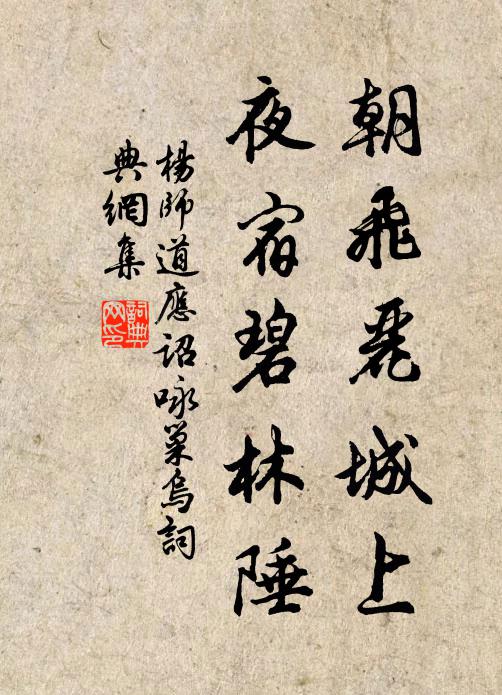 朝飛麗城上
夜宿碧林陲
楊師道應詔咏巢烏詞
典網集
詞典網印